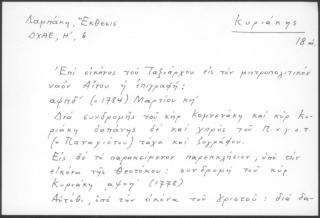 Λαμπάκη, Ἔκθεσις
ΔΧΑΕ, Η', 6
Κυριάκης
18 αἰ.
Ἐπὶ εἰκόνος τοῦ Ταξιάρχου εἰς τὸν μητροπολιτικὸν
ναὸν Αἴνου ἡ ἐπιγραφή:
αψπδ' (= 1784) Μαρτίου κη'
Διὰ συνδρομῆς τοῦ κὴρ Κομνενάκη καὶ κὺρ Κυ-
ριάκη δαπάνης δὲ καὶ χηρὸς τοῦ Π.ν.γ.ο.τ.
(= Παναγιότου) τάχα καὶ ζογράφου.
Εἰς δὲ τὸ παρακείμενον παρεκκλήσιον, ὑπὸ τὴν
εἰκόνα τῆς Θεοτόκου: συνδρομῇ τοῦ κὺρ
Κυριάκη αψοη' (1778)
Αὐτόθι, ὑπὸ τὴν εἰκόνα τοῦ Χριστοῦ: διὰ δα-